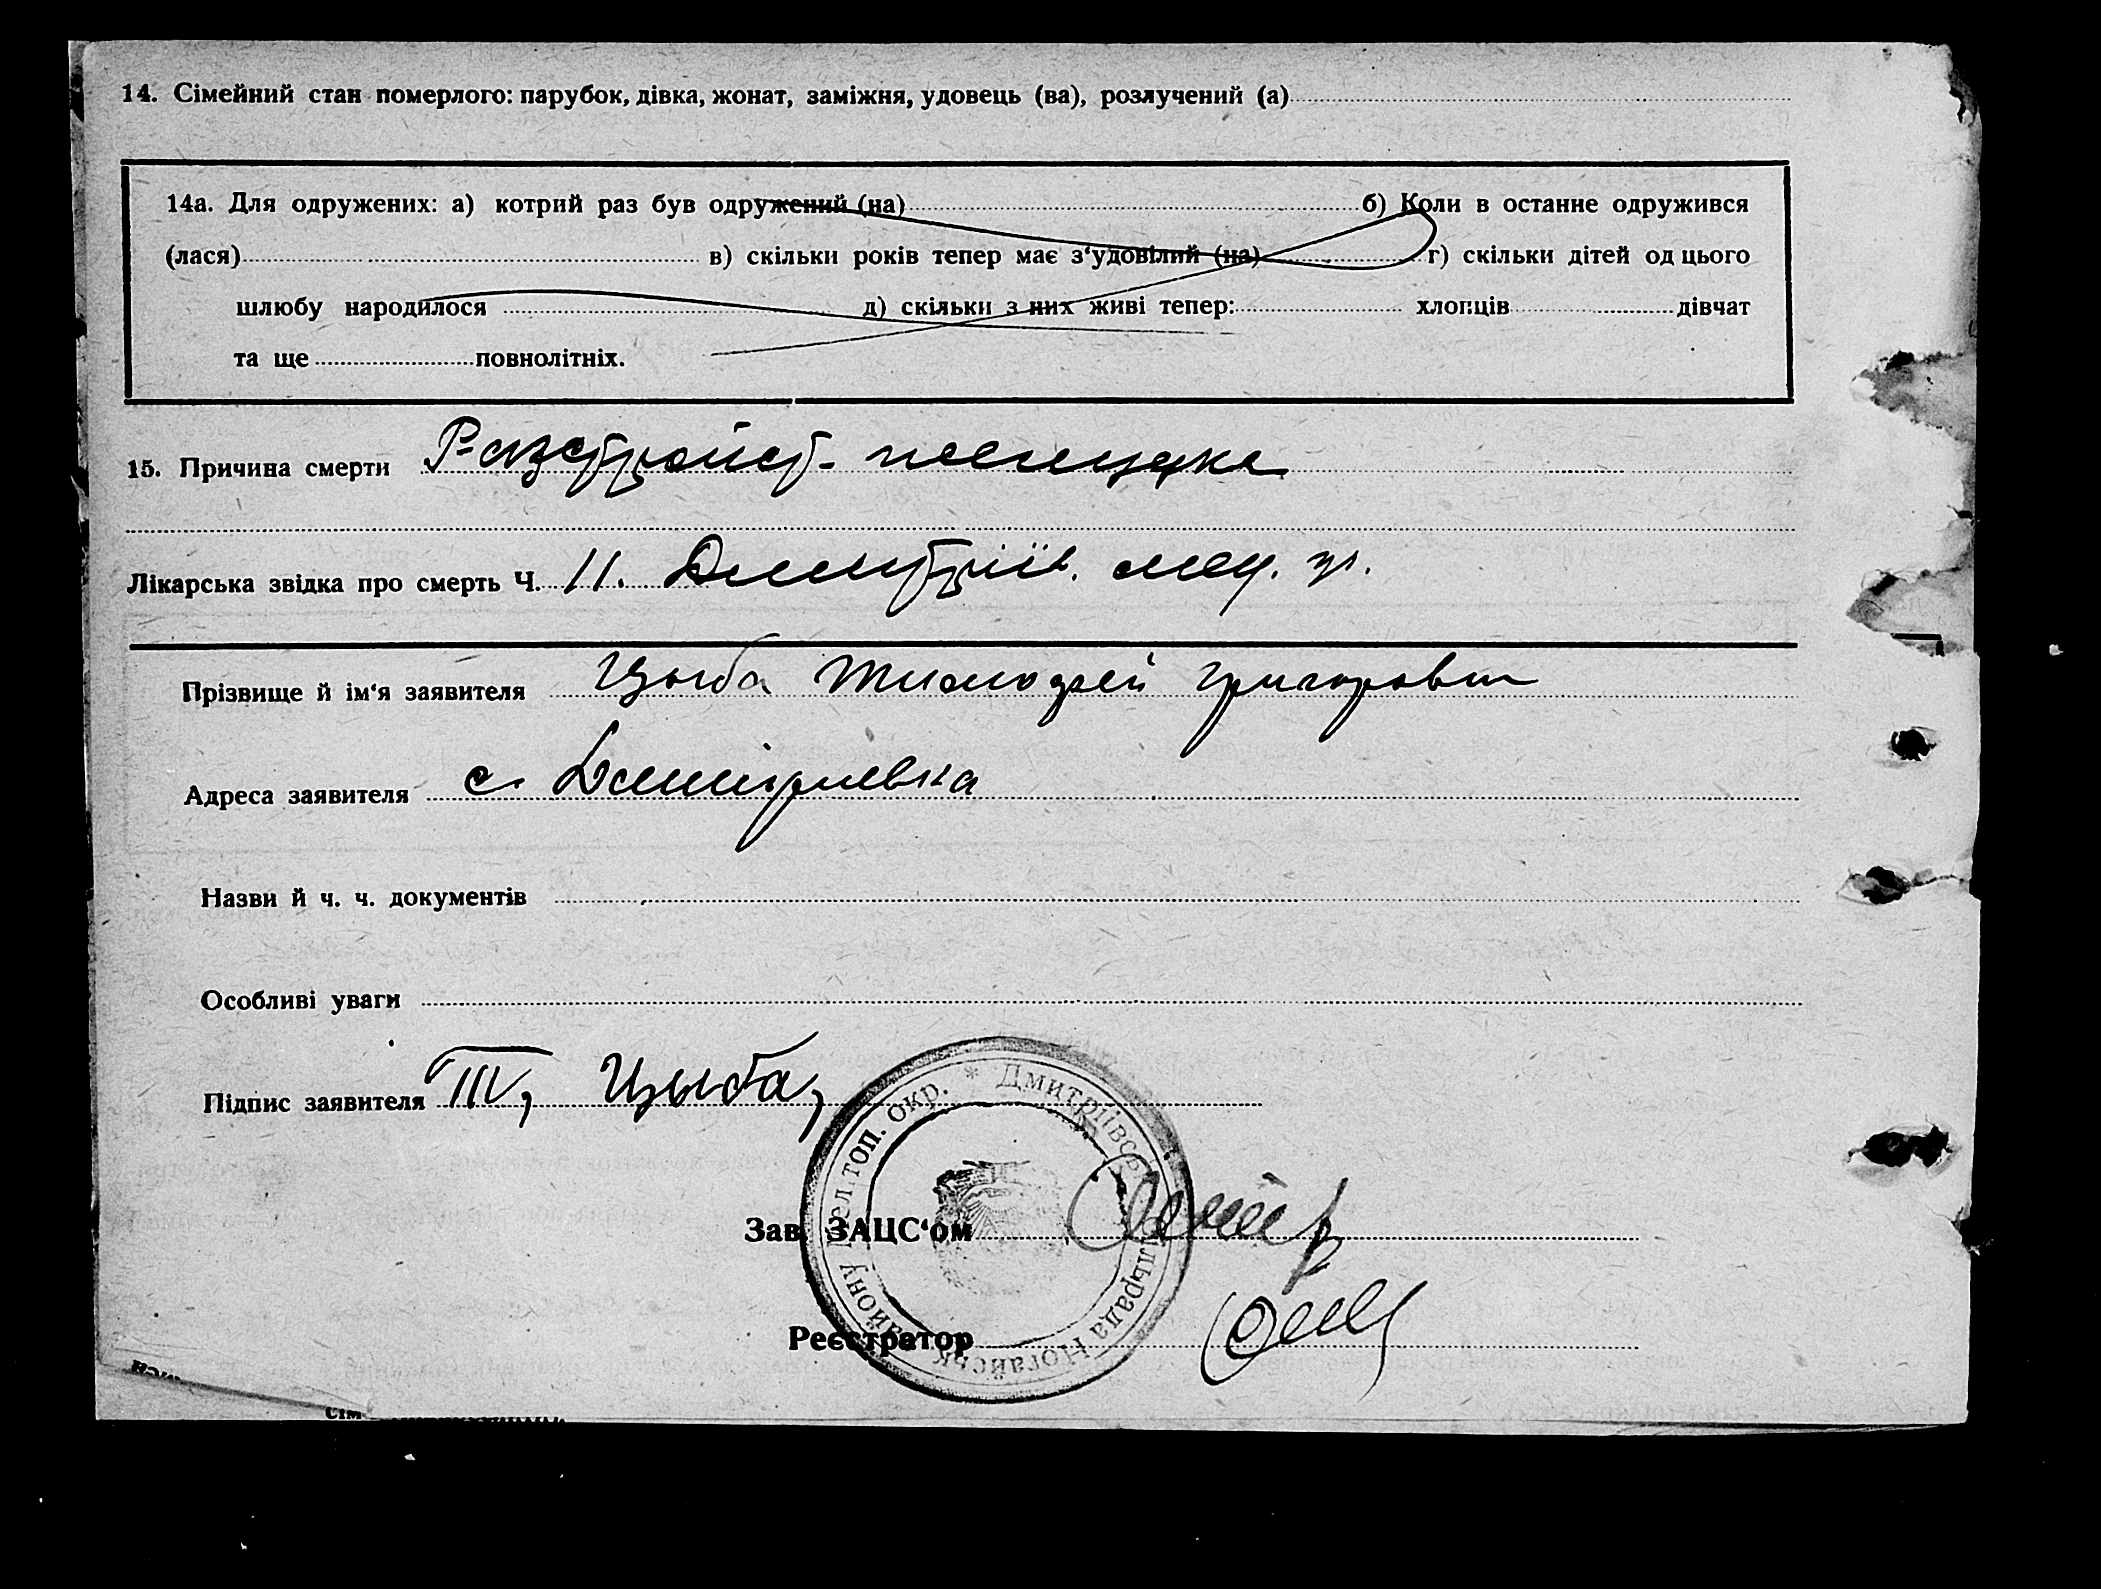 14. Сімейний стан померлого: парубок, дівка, жонат, заміжня, удовець (ва), розлучений (а)
14а. Для одружених: а) котрий раз був одружений (на) б) Коли в останне одружився
(лася) в) скільки років тепер має з‘удовілий (на) г) скільки дітей од цього
шлюбу народилося д) скільки з них живі тепер: хлопців дівчат
та ще повнолітніх.
15. Причина смерти Разстройст- желудка
Лікарська звідка про смерть Ч. 11. Дмитріів. мед. п.
Прізвище й ім‘я заявителя Цыба Тимофей Григорович
Адреса заявителя с. Дмитриевка
Назви й ч. ч. документів
Особливі уваги
Підпис заявителя Т, Цыба,
* Дмитріївська сільрада Ногайськ району Мелітоп. окр.
Зав. ЗАЦС‘ом
Реєстратор